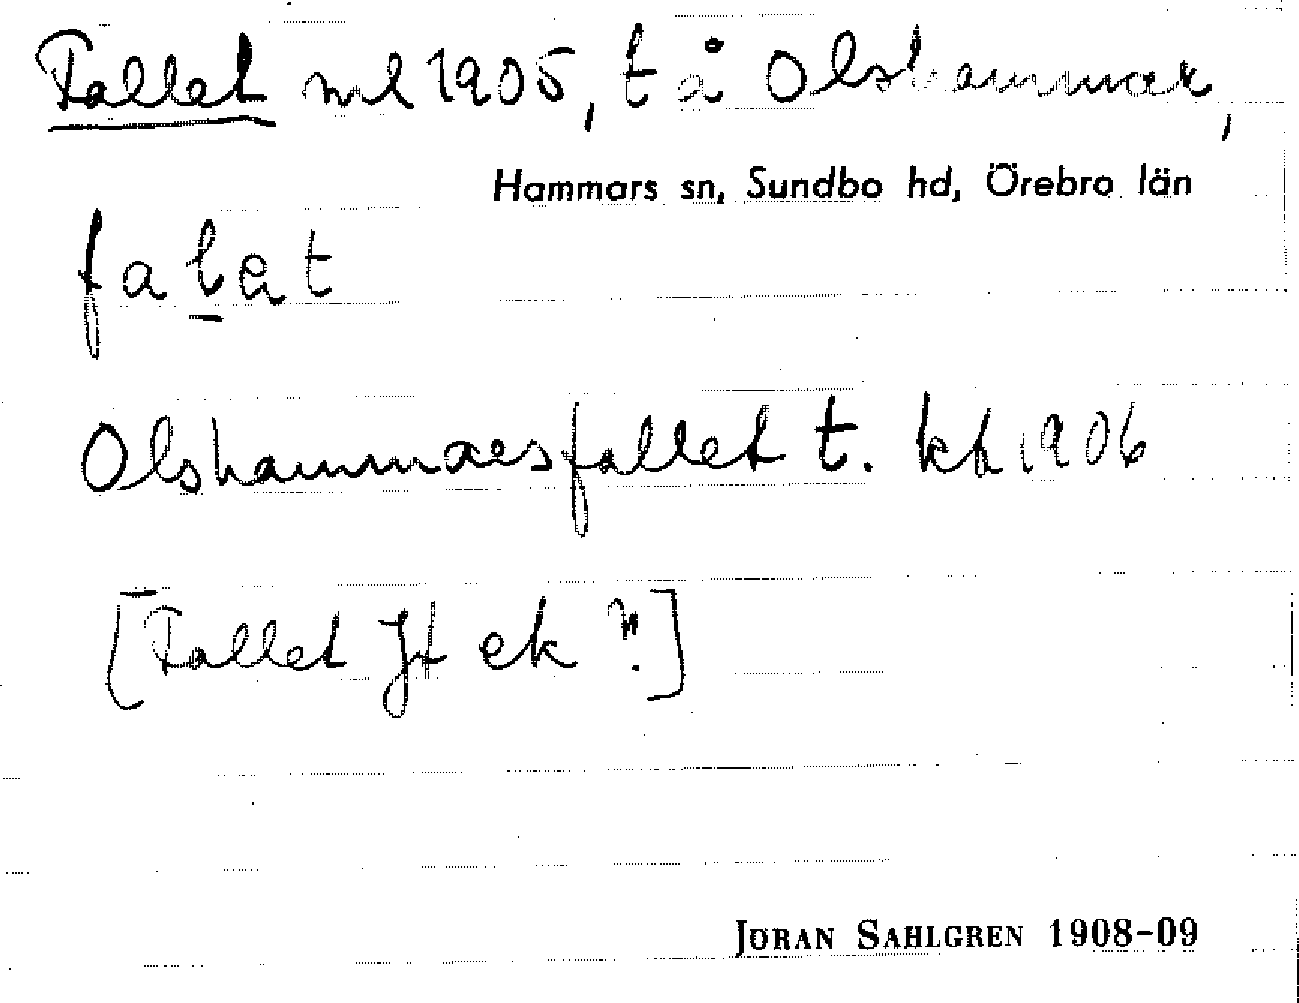 Fallet ml 1905, t å Olshammar,
Hammars sn, Sundbo hd, Örebro län
falet
Olshammarsfallet t. kh 1906
[Fallet Jt ek ?]
JÖRAN SAHLGREN 1908-09